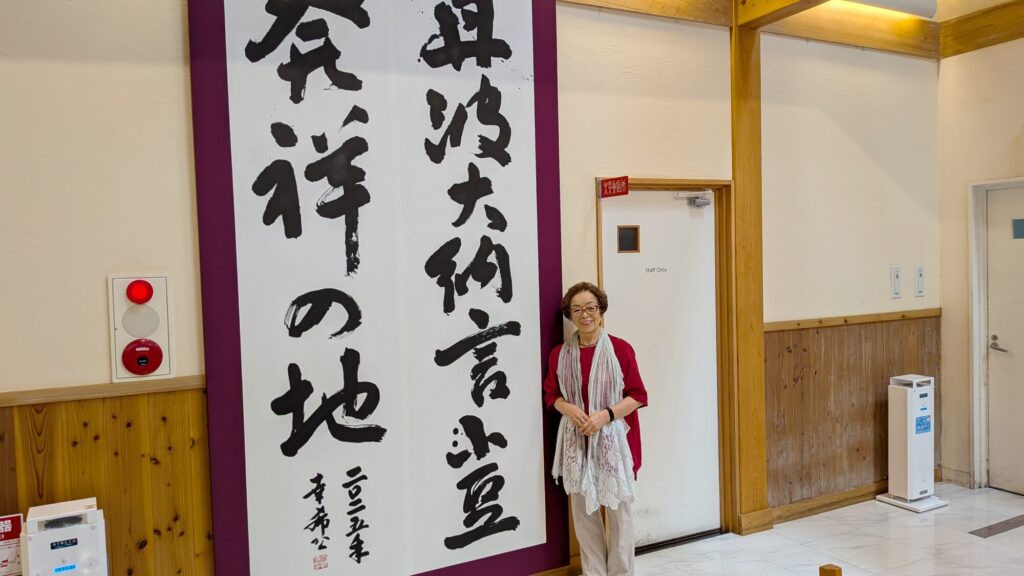 丹波大納言小豆
発祥の地
二〇二五年
Staff Only